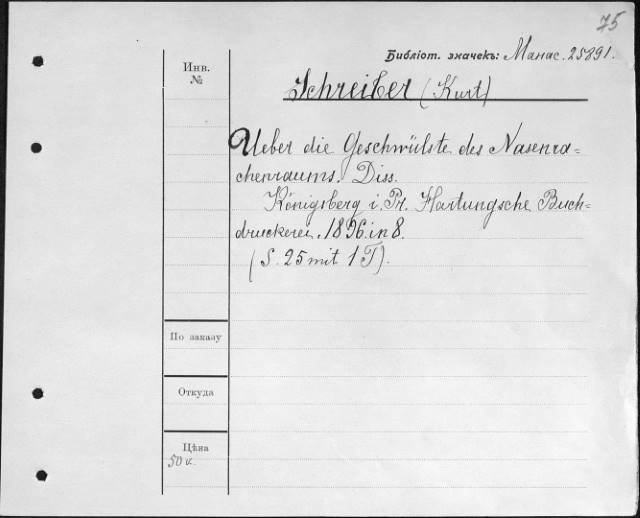 75
Библіот. значекъ: Манас. 25891.
Инв.
№
Schreiber (Kurt)
Ueber die Geschwülste des Nasenra=
chenraums. Diss.
Königsberg i. Pr. Hartungsche Buch=
druckerei, 1896. in 8.
(S. 25 mit 1 T).
По заказу
Откуда
Цѣна
50 к.